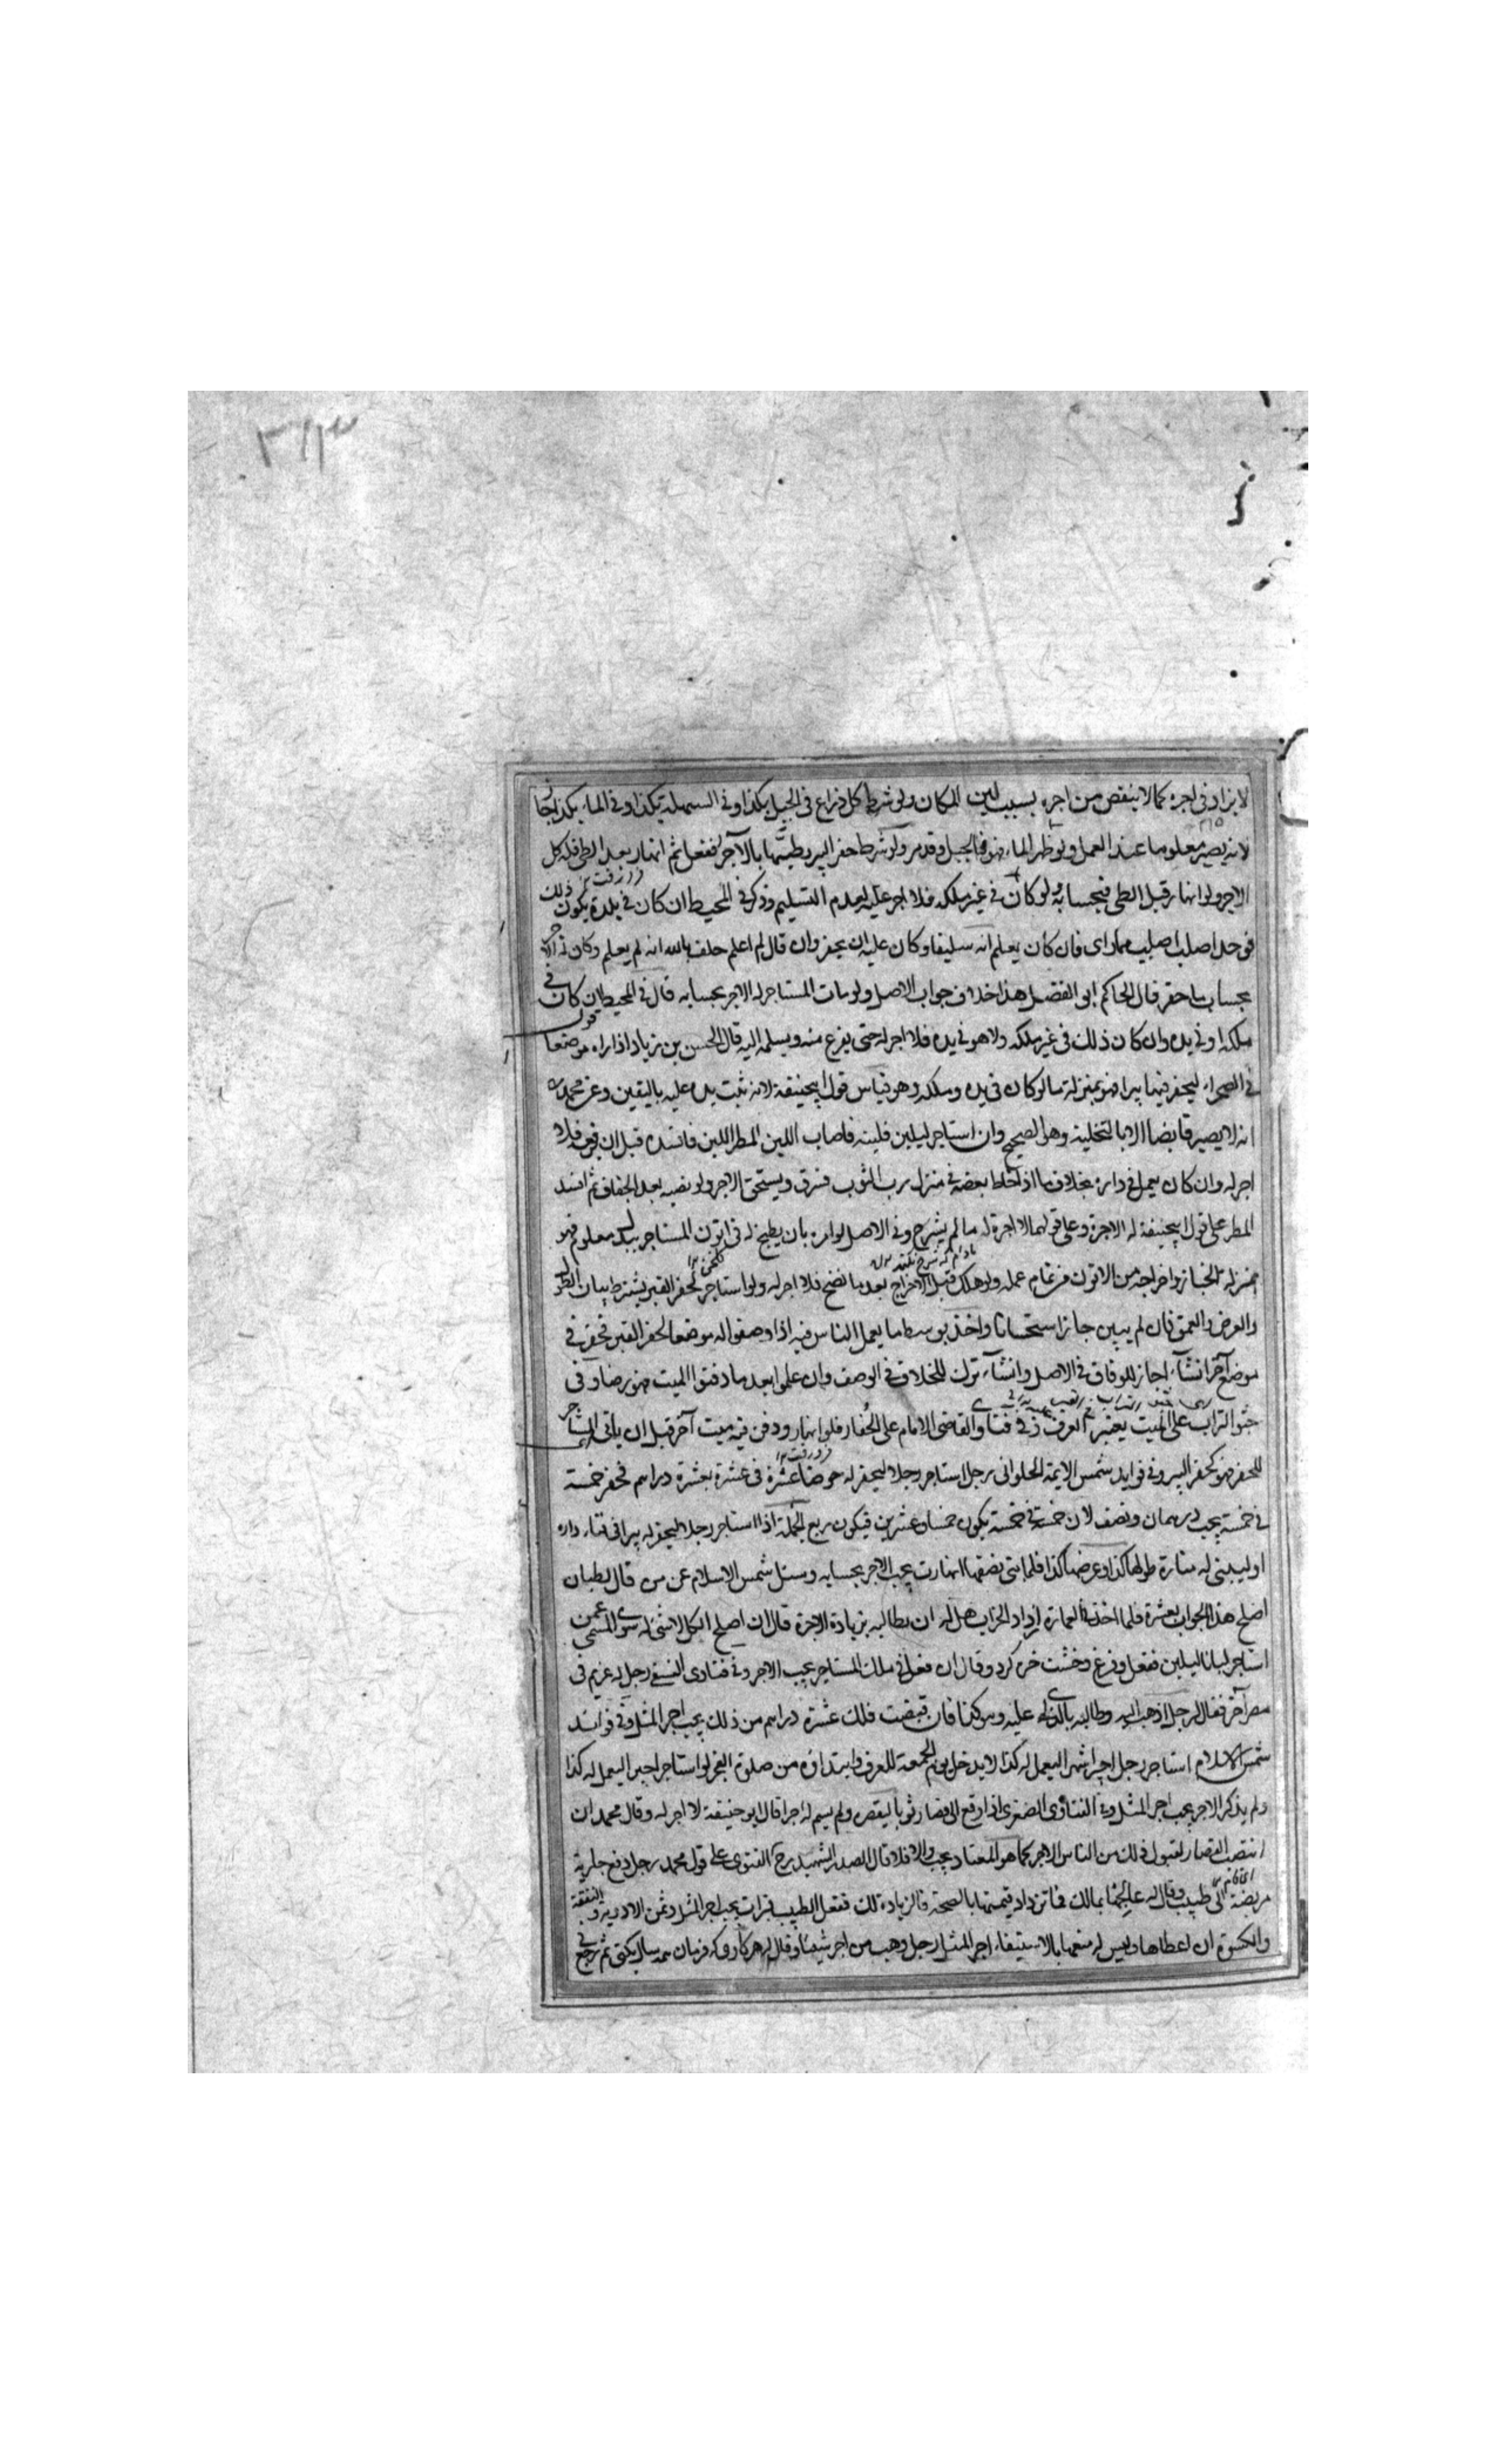 ٣١٣
لا يزاد في اجره كما لا ينقص من اجره بسبب لين المكان ولو شرط كل ذراع في الجبل بكذا وفي السهلة بكذا وفي الماء بكذا جاز
لانه يصير معلوما عند العمل ولو ظهر الماء فهو في الجبل وقد مر ولو شرط حفر البير وطيتها بالآجر ففعل ثم انهار بعد الطي فله كل
الاجر ولو انهار قبل الطي فبحسابه ولو كان في غير ملكه فلا اجر عليه لعدم التسليم وذكر في المحيط ان كان في بلدة يكون ذلك
فان كان يعلم انه وكان عليه ان يحفر وان قال لم اعلم حلف بالله انه لم يعلم وكان له الاجر
بحساب ما حفر قال الحاكم ابو الفضل هذا خلاف جواب الاصل ولو مات المستاجر له الاجر بحسابه قال في المحيط ان كان في
ملكه او في يده وان كان ذلك في غير ملكه ولا هو في يده فلا اجر له حتى يفرغ منه ويسلمه اليه قال الحسن بن زياد اذا اراه موضعا
في الصحراء ليحفر فيها بيرا فهو بمنزلة ما لو كان في يده وملكه وهو قياس قول ابي حنيفة لانه ثبت يده عليه باليقين وعن محمد
انه لا يصير قابضا الا بالتخلية وهو الصحيح وان استاجر ليلبن فلبنه فاصاب اللبن المطر اللبن فافسده قبل ان يرفعه فلا
اجر له وان كان يعمل في داره بخلاف ما اذا خاط بعضه في منزل رب الثوب فسرق ويستحق الاجر ولو نصبه بعد الجفاف ثم افسد
المطر على قول ابي حنيفة له الاجرة وعلى قولهما لا اجرة له ما لم يشرج وفي الاصل لو امره بان يطبخ له في اتون المستاجر ببدل معلوم فهو
بمنزلة الخباز واخراجه من الاتون من تمام عمله ولو هلك قبل الاخراج بعد ما نضج فلا اجر له ولو استاجر لحفر القبر يشترط بيان الطول
والعرض والعمق فان لم يبين جاز استحسانا واخذ بوسط ما يعمل الناس فيه اذا وصفوا له موضعا لحفر القبر فحفر في
موضع آخر ان شاء اجاز للوفاق في الاصل وان شاء ترك للخلاف في الوصف وان علموا بعد ما دفنوا الميت فهو رضا وفي
حثو التراب على الميت يعتبر العرف ذكر في فتاوى القاضي الامام على الحفار فلو انهار ودفن فيه ميت آخر قبل ان ياتى المستاجر
للحفر فهو كحفر البير وفي فوايد شمس الايمة الحلواني رجل استاجر رجلا ليحفر له حوضا عشرة في عشرة بعشرة دراهم فحفر خمسة
في خمسة يجب درهمان ونصف لان خمسة في خمسة يكون خمسا وعشرين فيكون ربع الجملة اذا استاجر رجلا ليحفر له بيرا في فناء داره
او ليبني له منارة طولها كذا وعرضها كذا فلما بنى نصفها انهارت يجب الاجر بحسابه وسئل شمس الاسلام عن من قال لطيان
اصلح هذا الخراب بعشرة فلما اخذ في العمارة ازداد الخراب هل له ان يطالبه بزيادة الاجرة قال ان اصلح الكل لا شئ له سوى المسمى عمن
استاجر لبانا ليلبن ففعل وفرغ وخشت خر كرد وقال ان فعل في ملك المستاجر يجب الاجر وفي فتاوى النسفي رجل له غريم في
مصر آخر فقال لرجل اذهب اليه وطالبه بالذي لي عليه وهو كذا فان قبضت فلك عشرة دراهم من ذلك يجب اجر المثل وفي فوائد
شمس الاسلام استاجر رجل اجيرا شهرا ليعمل له كذا لا يدخل يوم الجمعة للعرف وابتداؤه من صلوة الفجر لو استاجر اجيرا ليعمل له كذا
ولم يذكر الاجر يجب اجر المثل وفي الفتاوى الصغرى اذا دفع الى قصار ثوبا ليقصره ولم يسم له اجرا قال ابو حنيفة لا اجر له وقال محمد ان
انتصب القصار لقبول ذلك من الناس الاجر كما هو المعتاد يجب والا فلا قال الصدر الشهيد رح الفتوى على قول محمد رجل دفع جارية
مريضة الى طبيب وقال له عالجها بمالك فما تزداد قيمتها بالصحة فالزيادة لك ففعل الطبيب فبرات يجب اجر المثل وثمن الادوية والنفقة
والكسوة ان اعطاها وليس له منعها بالاستيفاء اجر المثل رجل وهب من اجر شيئا وقال